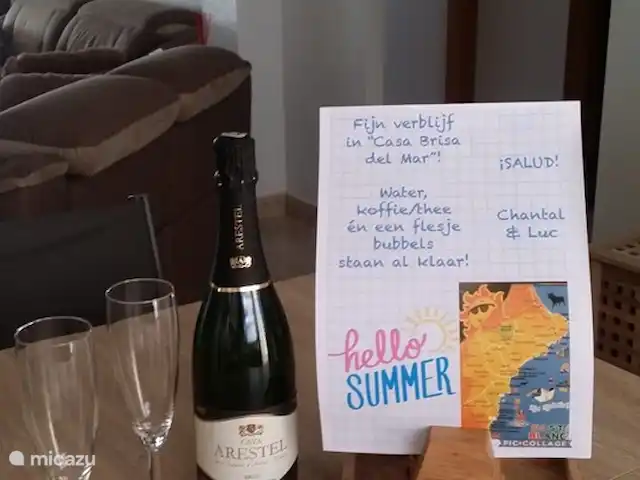 Fijn verblijf
in "Casa Brisa
del Mar"!
Water,
koffie/thee
én een flesje
bubbels
staan al klaar!
¡SALUD!
Chantal
& Luc
hello
SUMMER
PIC·COLLAGE
ARESTEL
CAVA
ARESTEL
micazu